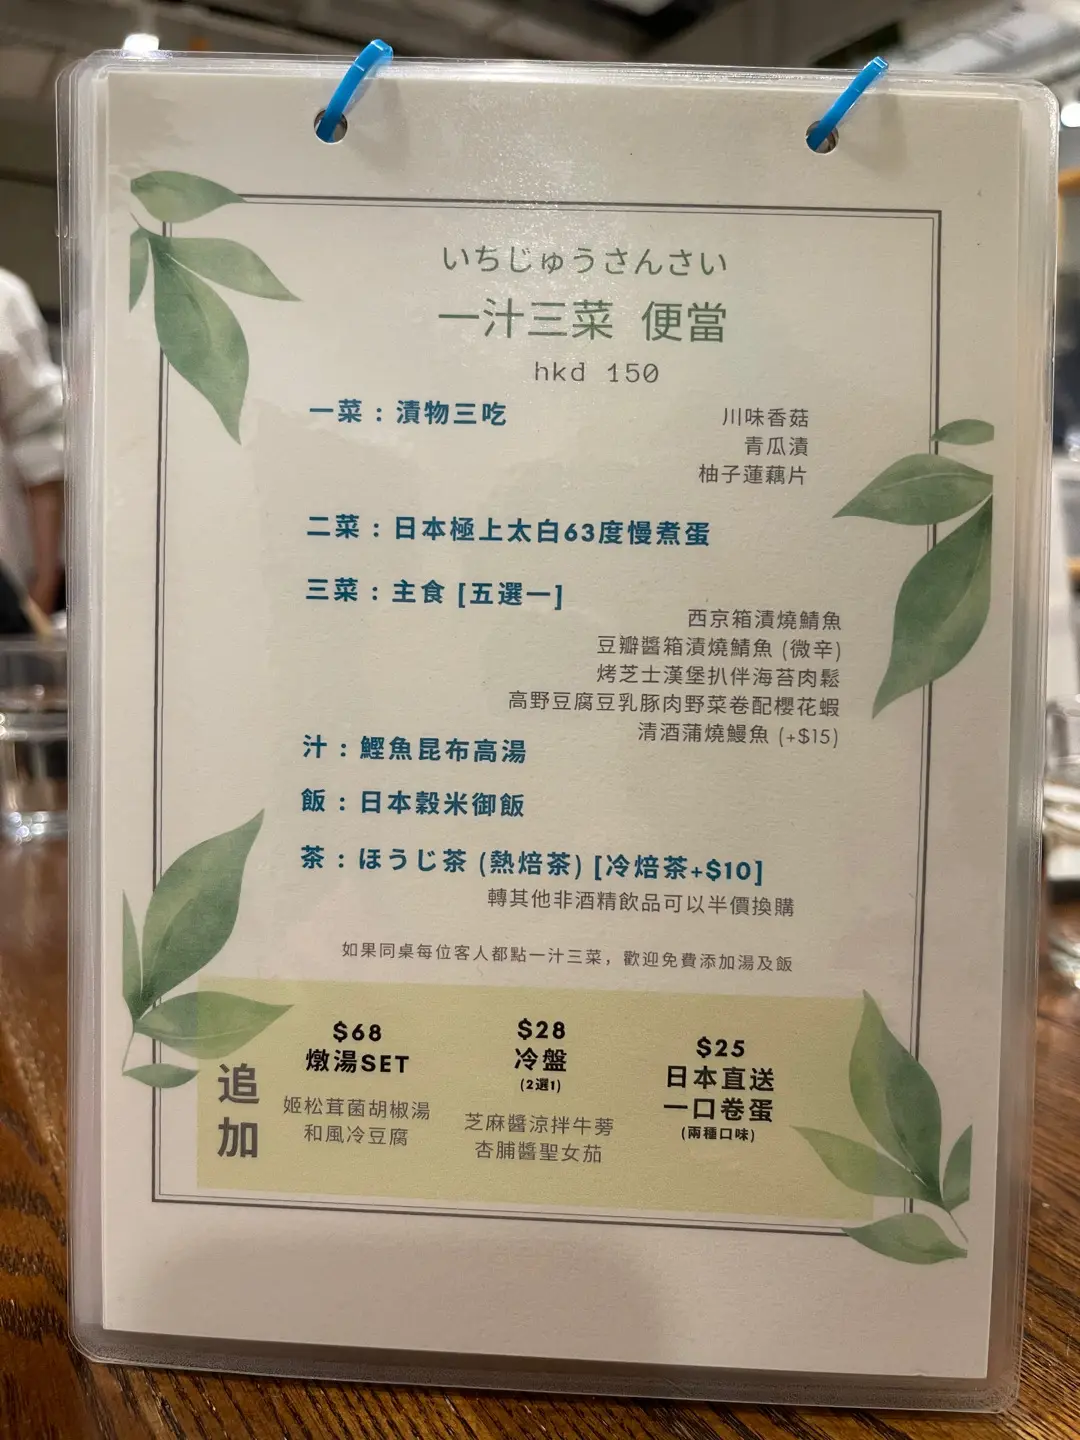 いちじゅうさんさい
一汁三菜 便當
hkd 150
一菜：漬物三吃
川味香菇
青瓜漬
柚子蓮藕片
二菜：日本極上太白63度慢煮蛋
三菜：主食 [五選一]
西京箱漬燒鯖魚
豆瓣醬箱漬燒鯖魚 (微辛)
烤芝士漢堡扒伴海苔肉鬆
高野豆腐豆乳豚肉野菜卷配櫻花蝦
清酒蒲燒鰻魚 (+$15)
汁：鰹魚昆布高湯
飯：日本穀米御飯
茶：ほうじ茶 (熱焙茶) [冷焙茶+$10]
轉其他非酒精飲品可以半價換購
如果同桌每位客人都點一汁三菜，歡迎免費添加湯及飯
追加
$68
燉湯SET
姬松茸菌胡椒湯
和風冷豆腐
$28
冷盤
(2選1)
芝麻醬涼拌牛蒡
杏脯醬聖女茄
$25
日本直送
一口卷蛋
(兩種口味)